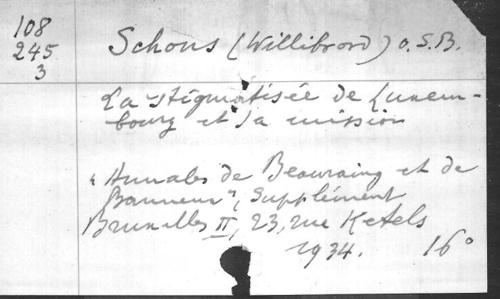 108
245
3
Schons (Willibrord) O.S.B.
La stigmatisée de Luxem-
bourg et sa mission
"Annales de Beauraing et de
Banneux", Supplément
Bruxelles II, 23, rue Ketels
1934. 16°